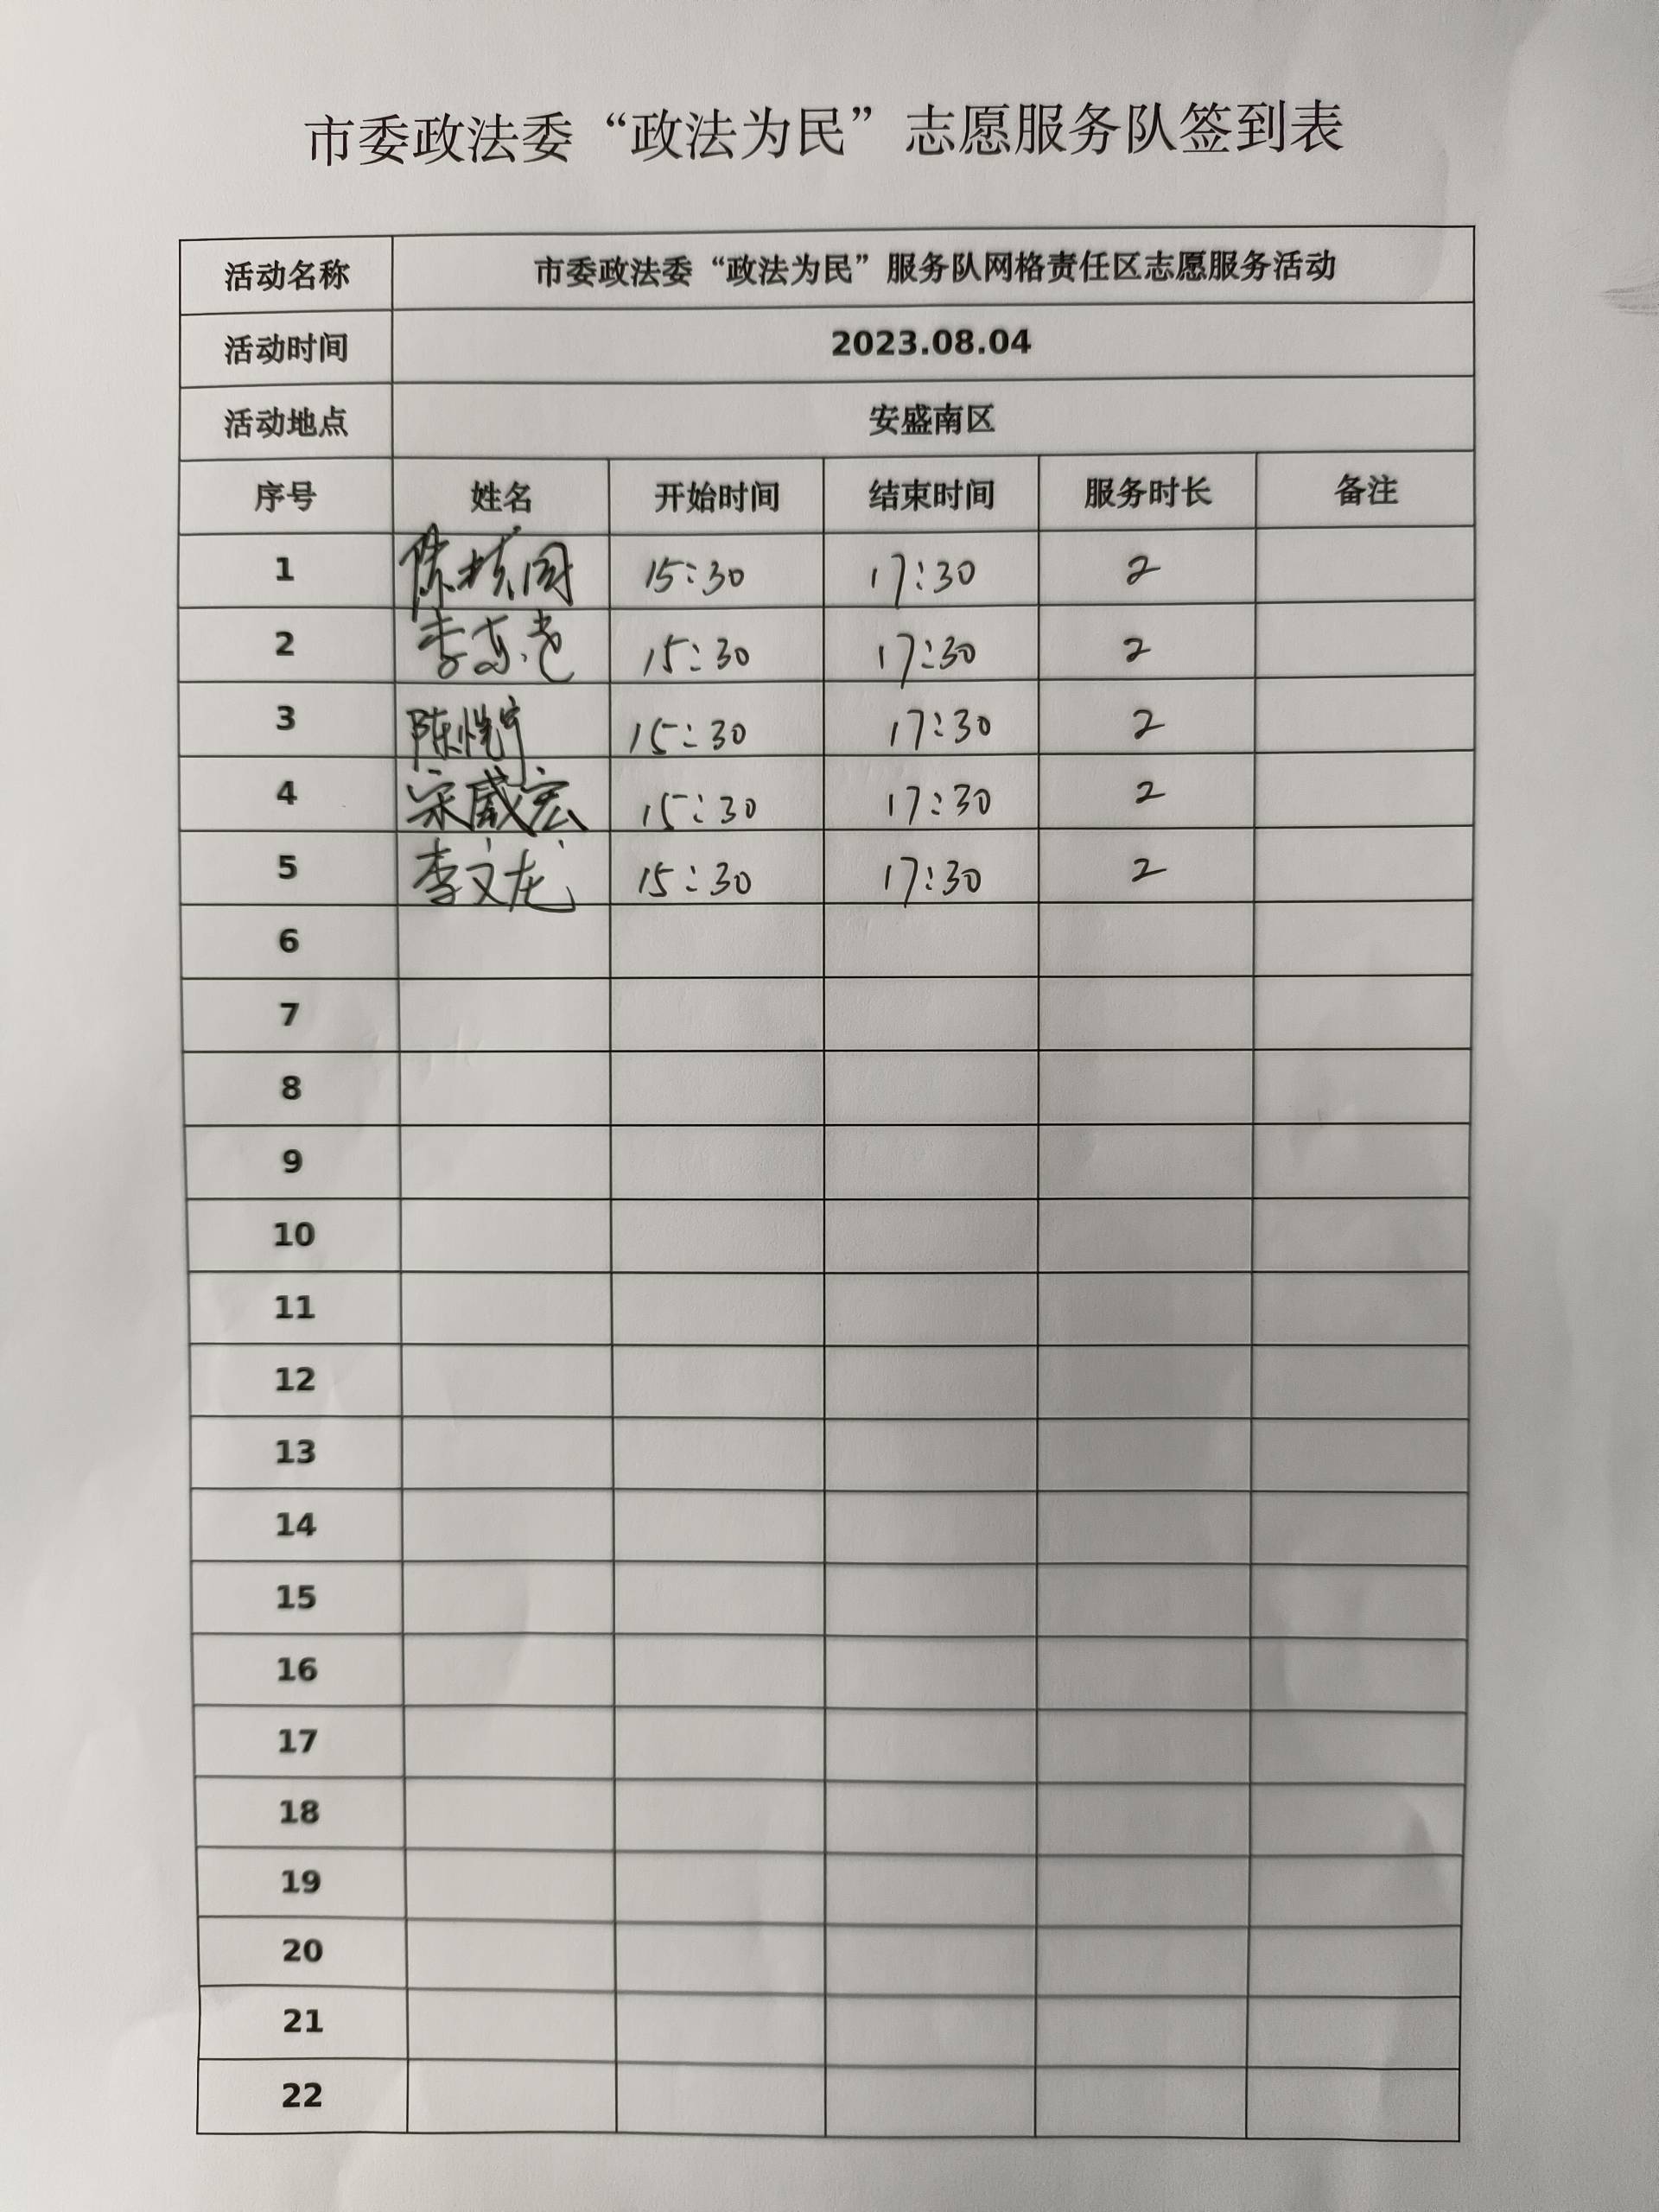 市委政法委“政法为民”志愿服务队签到表
活动名称 市委政法委“政法为民”服务队网格责任区志愿服务活动
活动时间 2023.08.04
活动地点 安盛南区
序号 姓名 开始时间 结束时间 服务时长 备注
1 15:30 17:30 2
2 15:30 17:30 2
3 15:30 17:30 2
4 宋威宏 15:30 17:30 2
5 李文龙 15:30 17:30 2
6
7
8
9
10
11
12
13
14
15
16
17
18
19
20
21
22